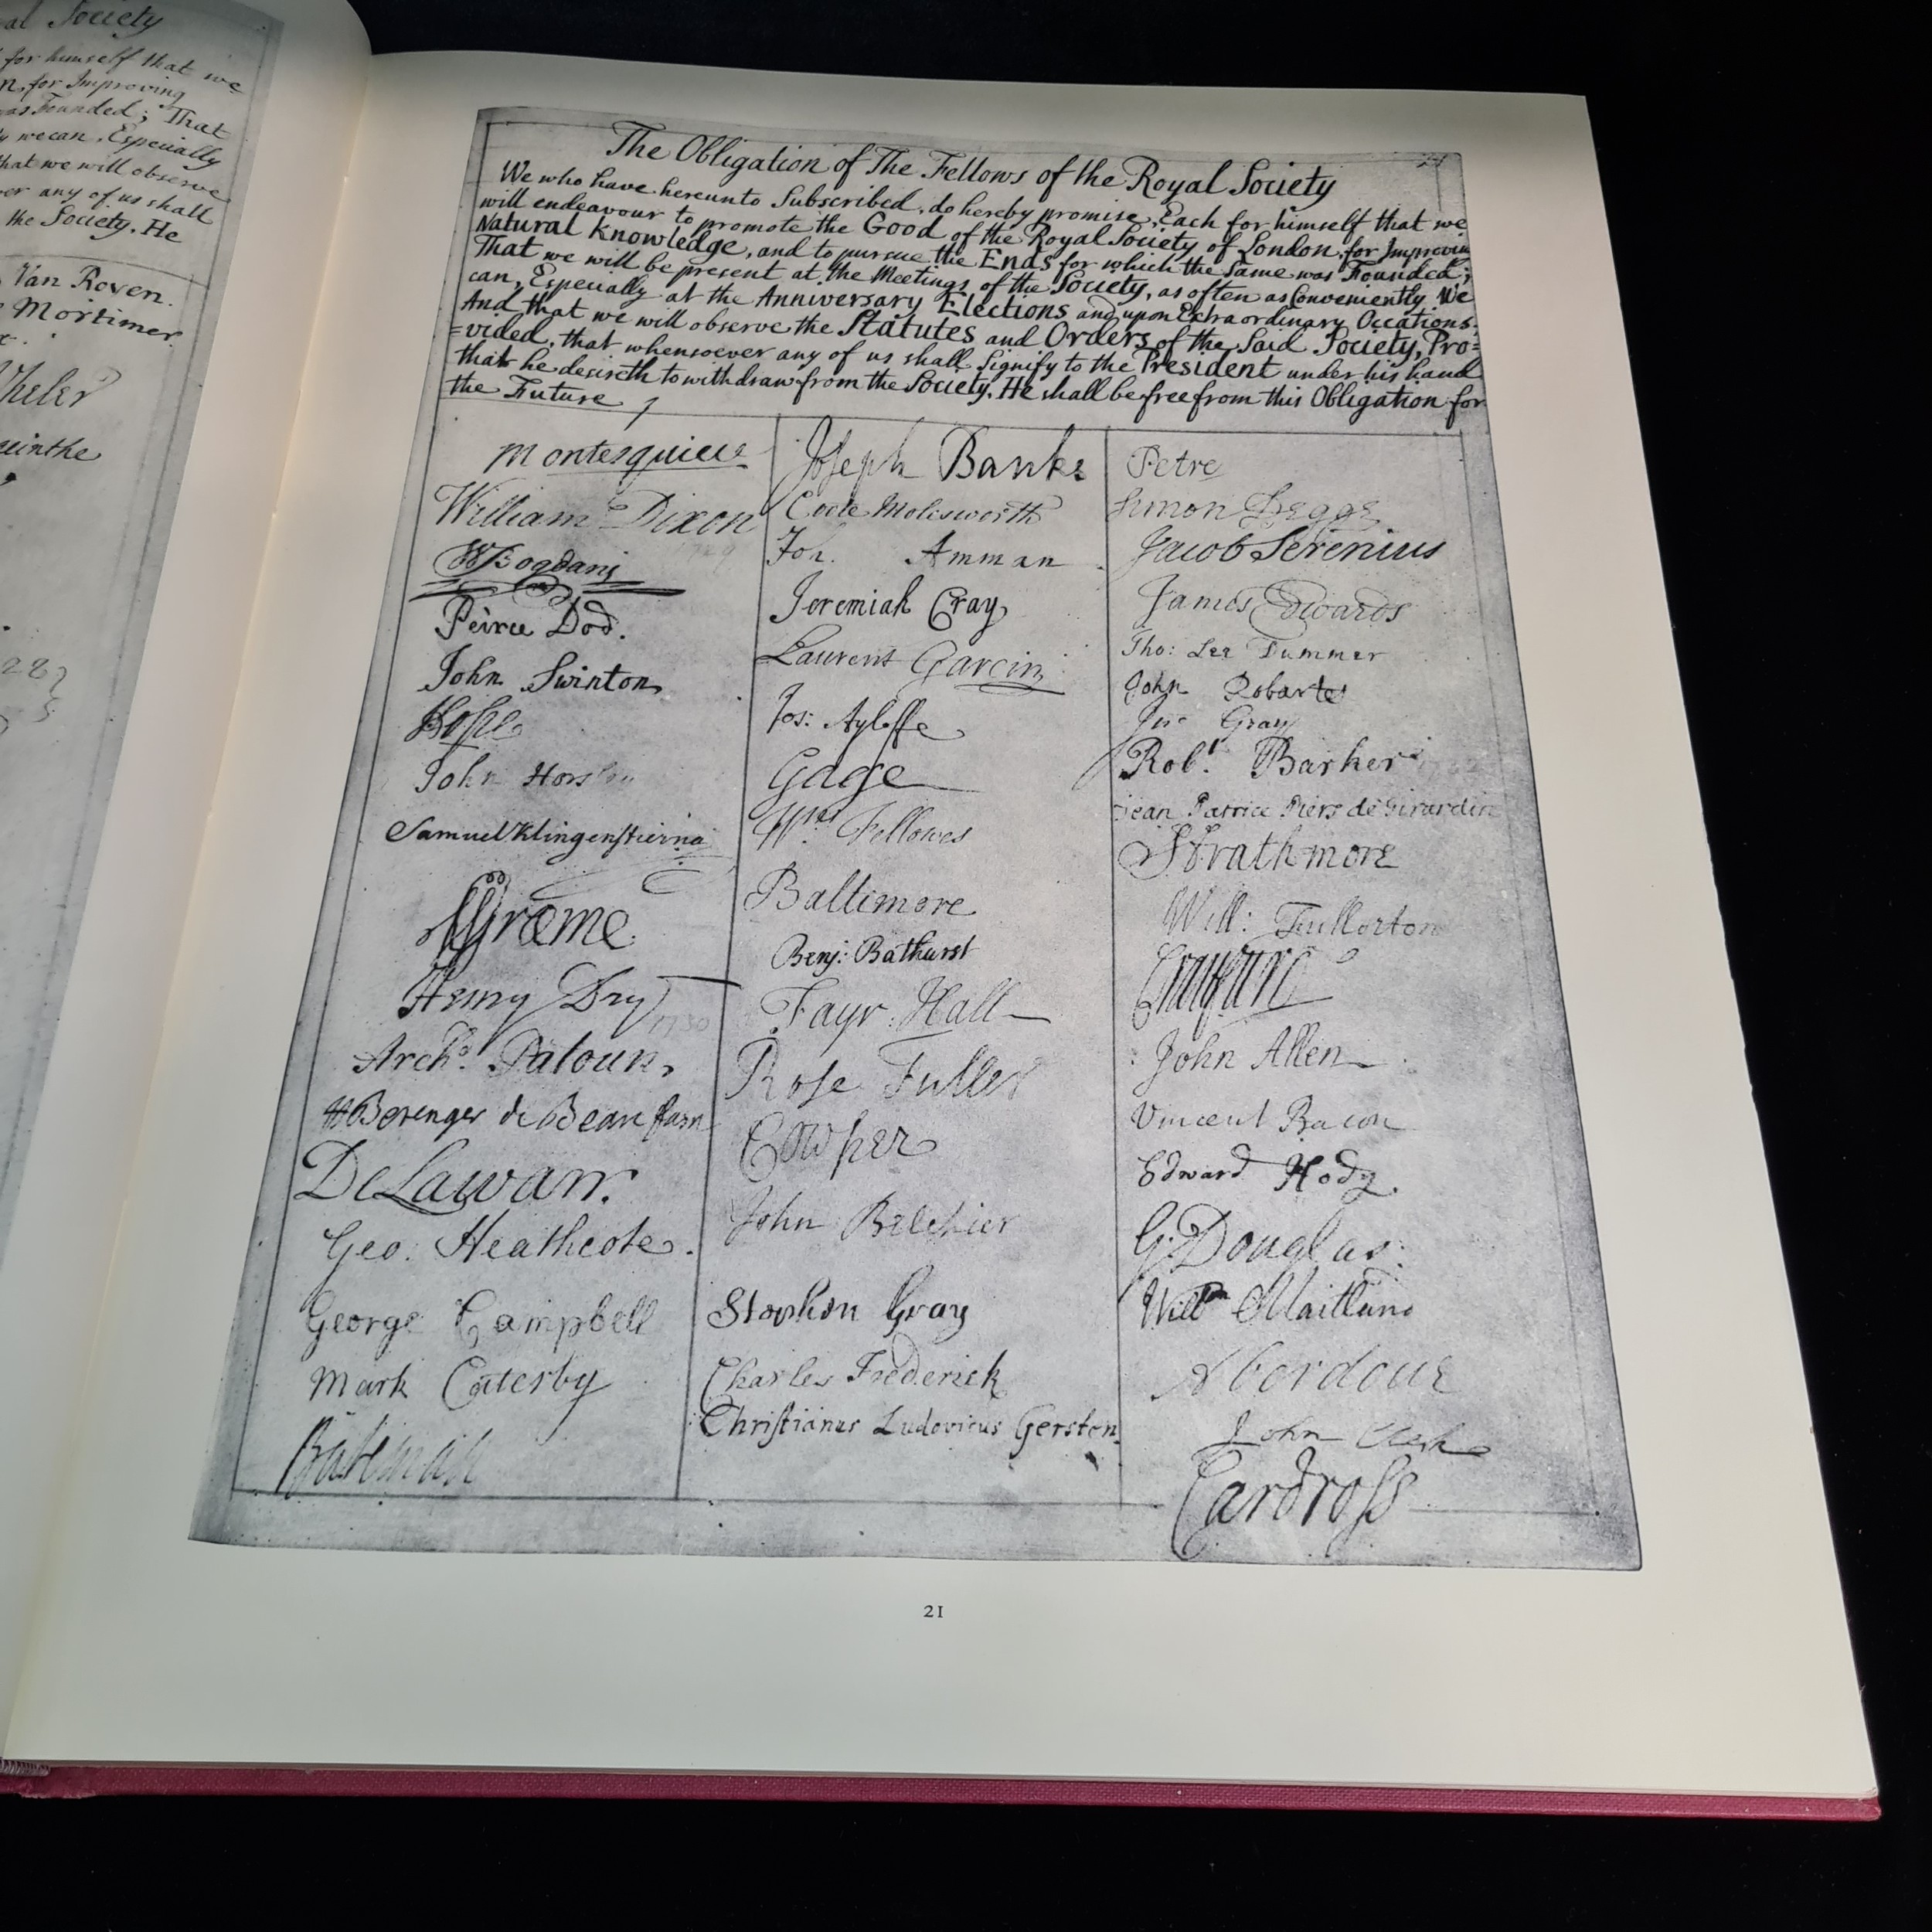 al Society
for himself that we
n, for Improving
was Founded; That
ly we can, Especially
that we will observe
ver any of us shall
the Society. He
Van Royen.
Mortimer
Wheler
cinthe
28
The Obligation of The Fellows of the Royal Society
We who have hereunto Subscribed, do hereby promise, Each for himself that we
will endeavour to promote the Good of the Royal Society of London, for Improving
Natural Knowledge, and to pursue the Ends for which the Same was Founded;
That we will be present at the Meetings of the Society, as often as Conveniently We
can, Especially at the Anniversary Elections and upon Extraordinary Occations;
And that we will observe the Statutes and Orders of the Said Society, Pro=
=vided, that whensoever any of us shall Signify to the President under his hand
that he desireth to withdraw from the Society. He shall be free from this Obligation for
the Future
Montesquieu
William Dixon
1729
WBogdani
Peirce Dod.
John Swinton
Hope
John Horsley
Samuel Klingenstierna
Græme
Henry Dry
1730
Archd. Patoun,
HBerenger de Beaufain
DeLawarr.
Geo: Heathcote.
George Campbell
Mark Catesby
Bateman
Joseph Banks
Coote Molesworth
Joh. Amman
Jeremiah Cray
Laurent Garcin
Jos: Ayloffe
Gage
Wm. Fellowes
Baltimore
Benj: Bathurst
Fayr: Hall
Rose Fuller
Cowper
John Belchier
Stephen Gray
Charles Frederick
Christianus Ludovicus Gersten
Petre
Simon Degge
Jacob Serenius
James Edwards
Tho: Lee Dummer
John Robartes
Jno Gray
Robt. Barker 1732
Jean Patrice Piers de Girardin
Strathmore
Will: Fullerton
Craufurd
John Allen
Vincent Bacon
Edward Hody.
G:Douglas:
Willm Maitland
Aberdour
John Clerk
Cardross
21